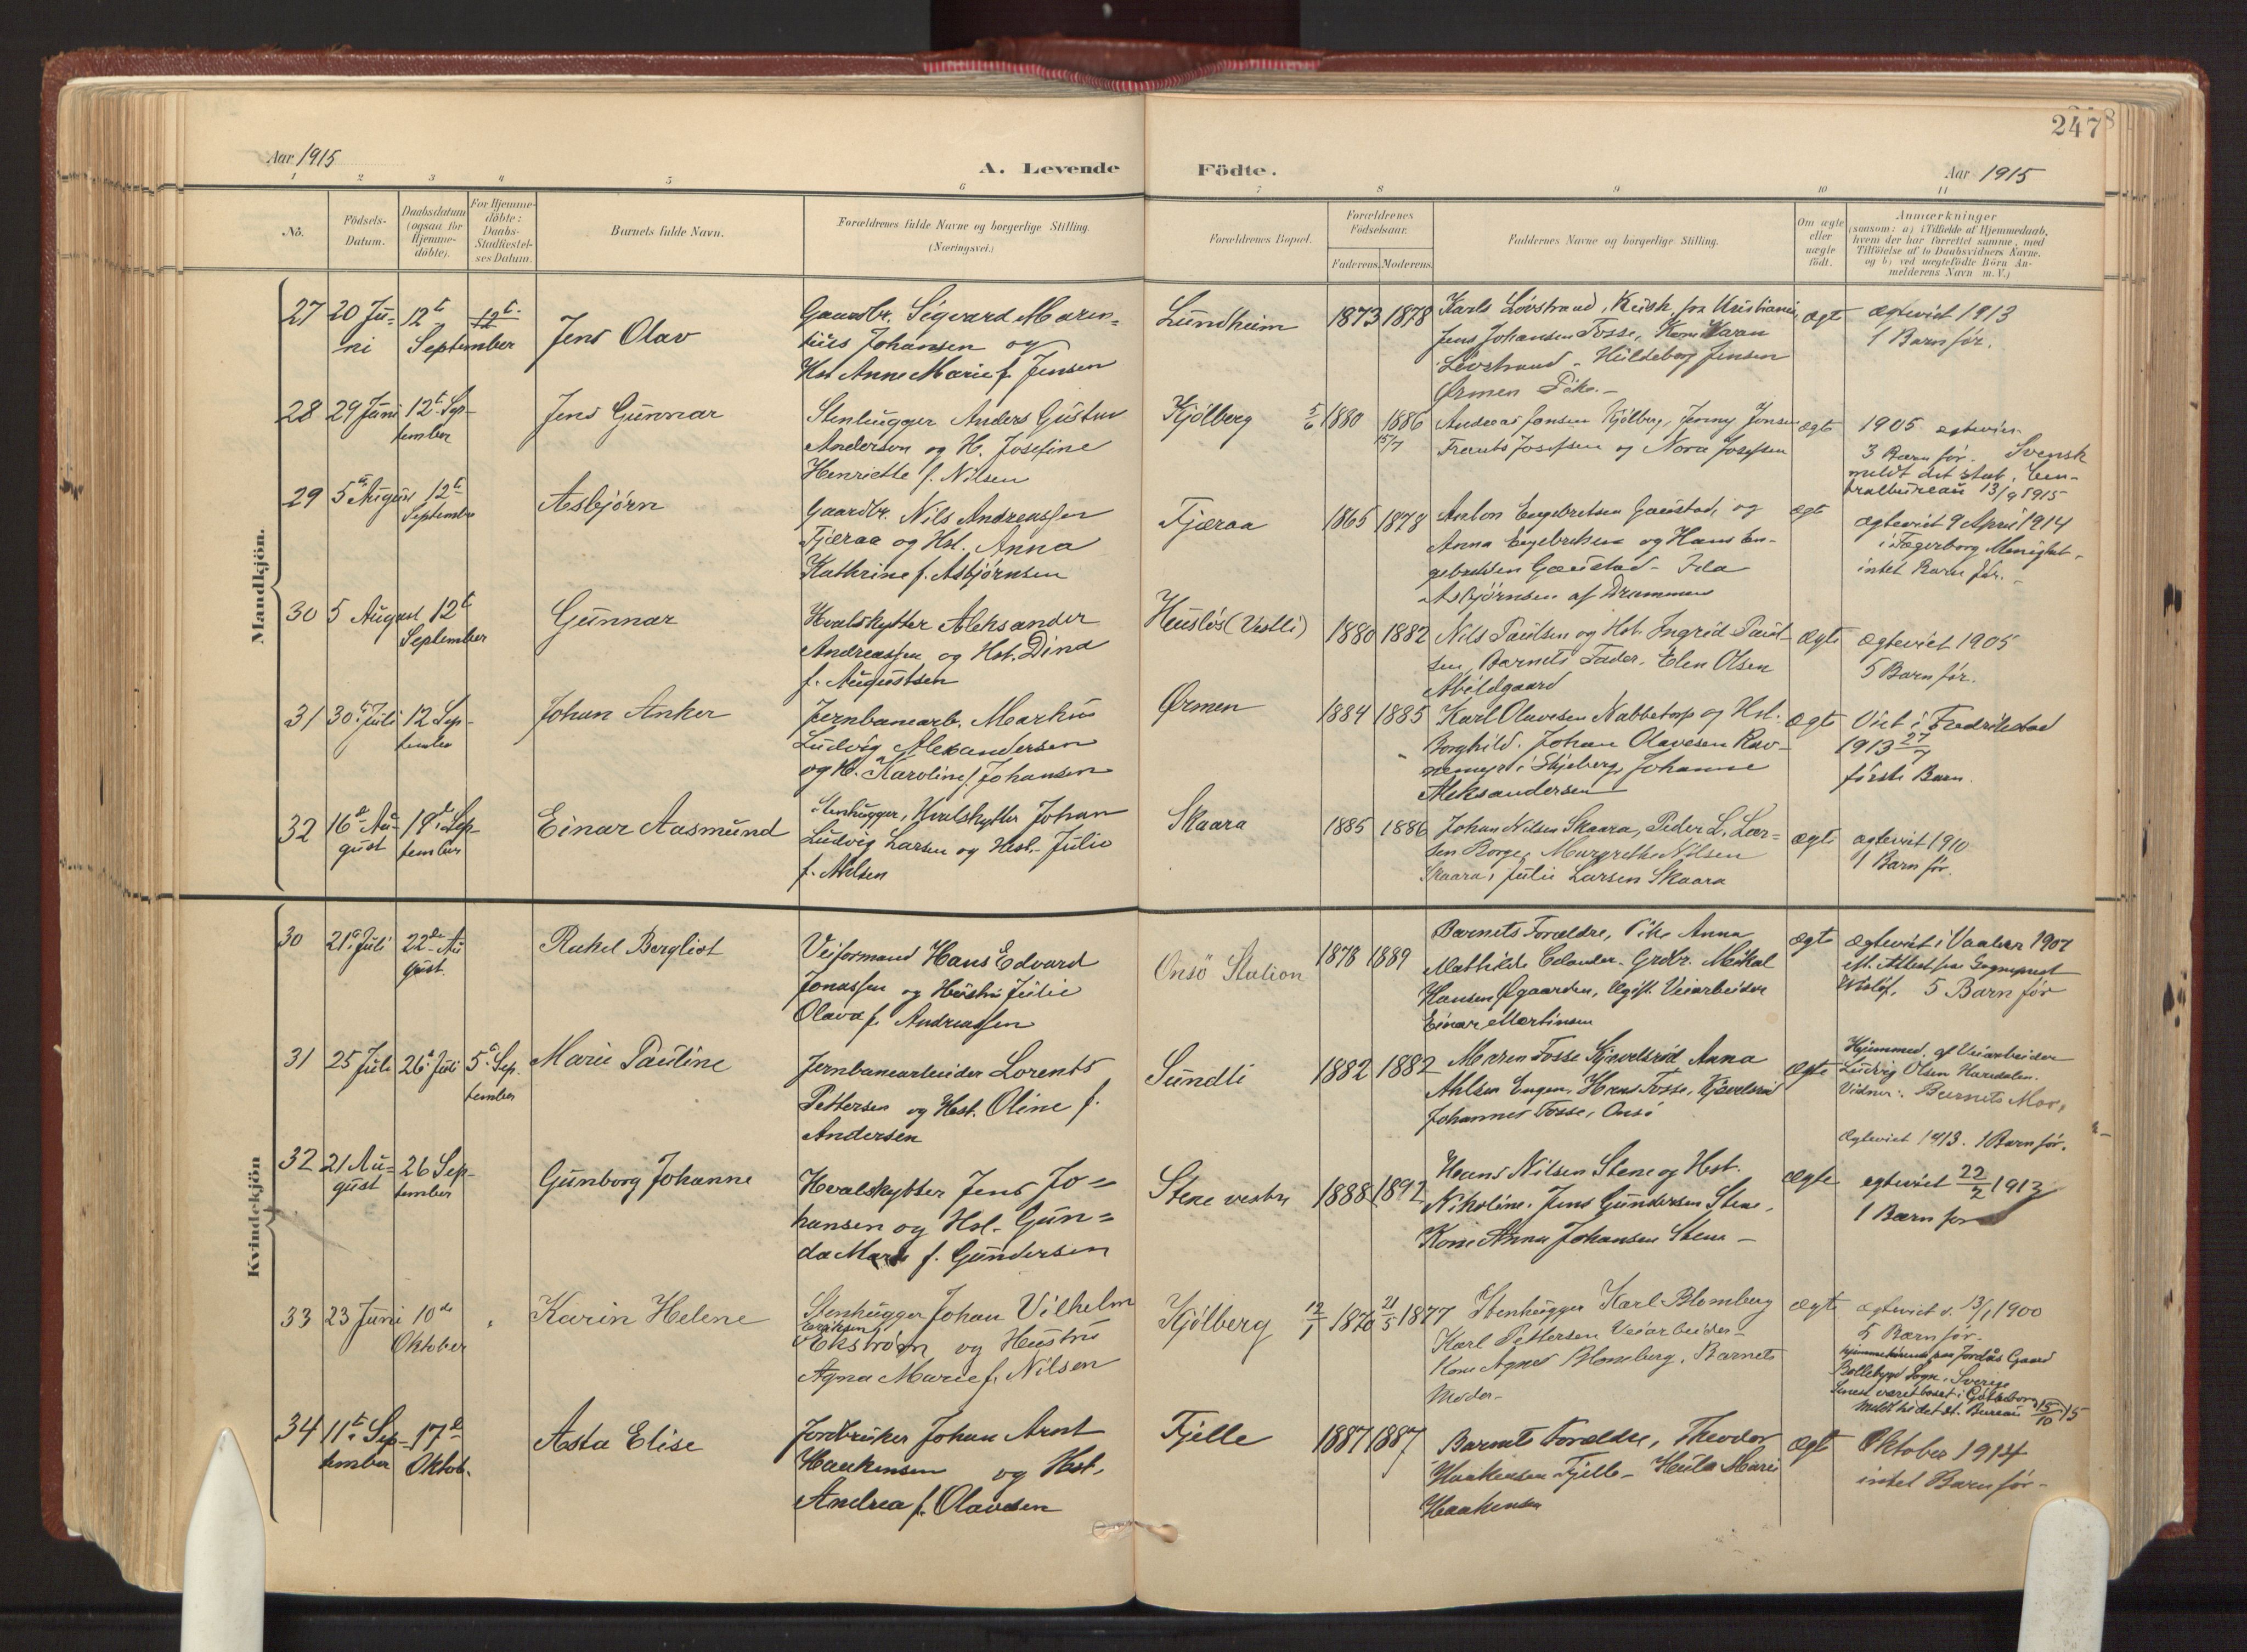 247
Aar 1915
A. Levende Födte.
Aar 1915
1 2 3 4 5 6 7 8 9 10 11
No.
Födsels-
Datum.
Daabsdatum
(ogsaa for
Hjemme-
döbte).
For Hjemme-
döbte:
Daabs-
Stadfæstel-
ses Datum.
Barnets fulde Navn.
Forældrenes fulde Navne og borgerlige Stilling.
(Næringsvei.)
Forældrenes Bopæl.
Forældrenes
Födselsaar.
Faderens. Moderens.
Faddernes Navne og borgerlige Stilling.
Om ægte
eller
uægte
födt.
Anmærkninger
(saasom: a) i Tilfælde af Hjemmedaab,
hvem der har forrettet samme, med
Tilföielse af to Daabsvidners Navne,
og b) ved uægtefödte Börn An-
melderens Navn m. V.)
Mandkjön.
27
20 Ju-
ni
12te
September
12te
Jens Olav
Gaardbr. Sigvard Marin-
ius Johansen og
Hst Anne Marie f. Jensen
Lundheim
1873 1878
Karls Lövstrand, Kusk, fra Kristiania,
Jens Johansen Fosse, Kone Karan
Lövstrand - Hildeborg Jensen
Ørmen Pike.-
ægte
ægteviet 1913
1 Barn för.
28
29 Juni
12te Sep-
tember
Jens Gunnar
Stenhugger Anders Gustav
Anderson og H. Josefine
Henriette f. Nilsen
Kjölberg
5/6 1880
1886
15/7
Andreas Jansen Kjölberg, Jenny Jensen
Frants Josefsen og Nora Josefsen
ægte
1905 ægteviet
3 Barn för. Svensk
meldt det stat. Cen-
tralbureau 13/9 1915
29
5te August
12te
September
Asbjörn
Gaardbr. Nils Andreassen
Fjæraa og Hst. Anna
Kathrine f. Asbjörnsen
Fjæraa
1865 1878
Anton Engebretsen Gaustad, og
Anna Engebretsen og Hans En-
gebretsen Gaustad - Ida
Asbjörnsen af Drammen
ægte
ægteviet 9 April 1914
i Fagerborg Menighet -
intet Barn för. -
30
5 August
12te
September
Gunnar
Hvalskytter Aleksander
Andreassen og Hst. Dina
f. Augustsen
Huslös (Vestli)
1880 1882
Nils Paulsen og Hst. Ingrid Paul-
sen, Barnets Fader. Elen Olsen
Abildgaard
ægte
ægteviet 1905
5 Barn för.
31
30te Juli
12 Sep-
tember
Johan Anker
Jernbanearb. Markus
Ludvig Alexandersen
og H. Karoline f. Johansen
Ørmen
1884 1885
Karl Olavesen Nabbetorp og Hst.
Borghild. Johan Olavesen Rav-
nemyr i Skjeberg, Johanne
Aleksandersen
ægte
Viet i Fredrikstad
1913 27/7
förste Barn.
32
16de Au-
gust
19de Sep-
tember
Einar Aasmund
Stenhugger, Hvalskytter Johan
Ludvig Larsen og Hst. Julie
f. Nilsen
Skaara
1885 1886
Johan Nilsen Skaara, Peder L. Lar-
sen Borge, Margrethe Nilsen
Skaara, Julie Larsen Skaara
ægte
ægteviet 1910
1 Barn för.
Kvindekjön
30
21de Juli
22de Au-
gust.
Rakel Bergliot
Veiformand Hans Edvard
Jonassen og Hustru Julie
Olava f. Andreassen
Onsö Station
1878 1889
Barnets Forældre, Pike Anna
Mathilde Celander. Grdbr. Mikal
Hansen Øgaarden, Ugift Veiarbeider
Einar Martinsen
ægte
ægteviet i Vaaler 1907
Af. Attest fra Sogneprest
5 Barn för
31
25 Juli
26de Juli
5te Sep-
tember
Marie Pauline
Jernbanearbeider Lorents
Pettersen og Hst. Oline f.
Andersen
Sundli
1882 1882
Maren Fosse Kjævelsrød Anna
Ahlsen Engen, Hans Fosse, Kjævelsrød
Johannes Fosse, Onsö
ægte
Hjemmed. af Veiarbeider
Ludvig Olsen Haredalen.
Vidner: Barnets Mor,
Ægteviet 1913. 1 Barn för.
32
21 Au-
gust
26 Sep-
tember
Gunborg Johanne
Hvalskytter Jens Jo-
hansen og Hst. Gun-
da Marie f. Gundersen
Stene vestre
1888 1892
Hans Nilsen Stene og Hst.
Nikoline. Jens Gundersen Stene,
Kone Anna Johansen Stene -
ægte
ægteviet 22/2 1913
1 Barn för
33
23 Juni
10de
Oktober
Karin Helene
Stenhugger Johan Vilhelm
Eriksen
Ekström og Hustru
Agna Marie f. Nilsen
Kjölberg
12/1 1870
21/5 1877
Stenhugger Karl Blomberg
Karl Pettersen Veiarbeider -
Kone Agnes Blomberg, Barnets
Moder -
ægte
ægteviet d. 13/1 1900
5 Barn för.
hjemmehörende paa Jordås Gaard
Bollebygd Sogn, Sverige
Senest været bosat i Göteborg
meldt til det st. Bureau 15/10 15
34
11te Sep-
tember
17de
Oktob.
Asta Elise
Jordbruker Johan Arnt
Haakensen og Hst.
Andrea f. Olavesen
Fjelle
1887 1887
Barnets Forældre, Theodor
Haakensen Fjelle - Hulda Marie
Haakensen
ægte
Oktober 1914
intet Barn för -